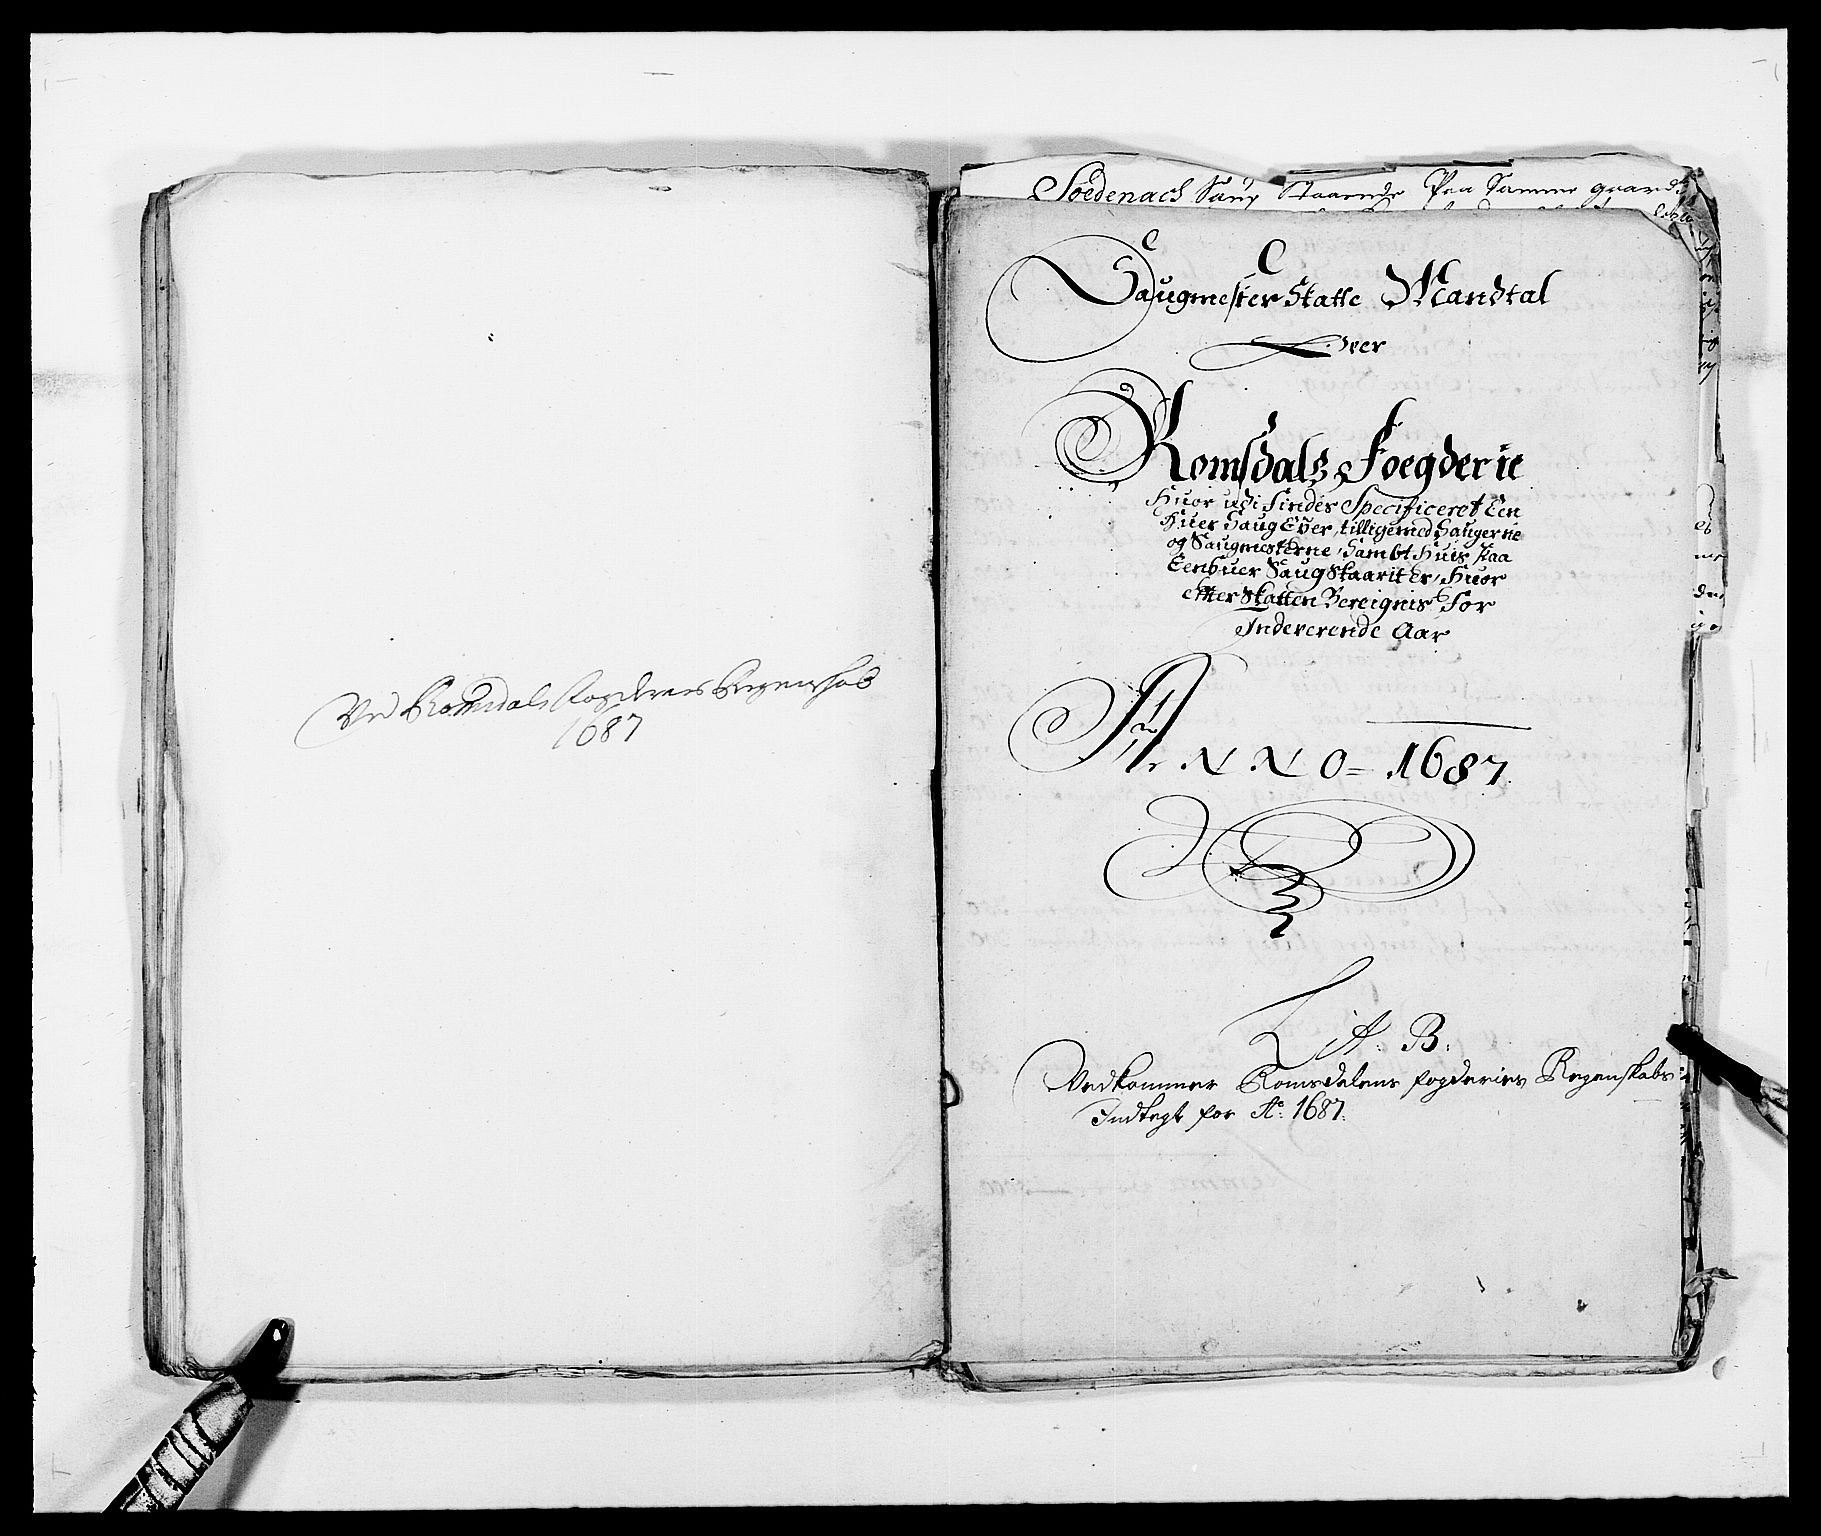 Ved Romsdals fogderies Regenskab
1687
Soedenach Saug Staaende Paa Samme gaard
Saugmester Skatte Mandtal
Over
Romsdalz Foegderie
Huor udi Findes Specificeret Een
Huer Saug Eyer, tilligemed Saugerne
og Saugmesterne, Sambt Huis Paa
Eenhuer Saug Skaarit Er, Huor
Efter Skatten Bereignis For
Indeverende Aar
ANNO = 1687
Lit. B.
Vedkommer Romsdalens fogderies Regenskabs
Indtegt for Ao. 1687.